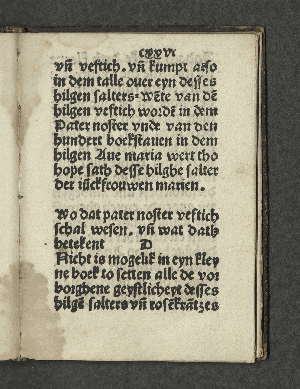 cxxvi
vñ veftich. vñ kumpt also
in dem talle ouer eyn desses
hilgen salters. wẽte van dẽ
hilgen veftich wordẽ in dem
Pater noster vnde van den
hundert boekstauen in dem
hilgen Aue maria wert tho
hope sath desse hilghe salter
der iũckfrouwen marien.
Wo dat pater noster veftich
schal wesen. vñ wat dath
betekent D
Nicht is mogelik in eyn kley
ne boek to setten alle de vor
borghene geystlicheyt desses
hilgẽ salters vñ rosẽkrãtzes